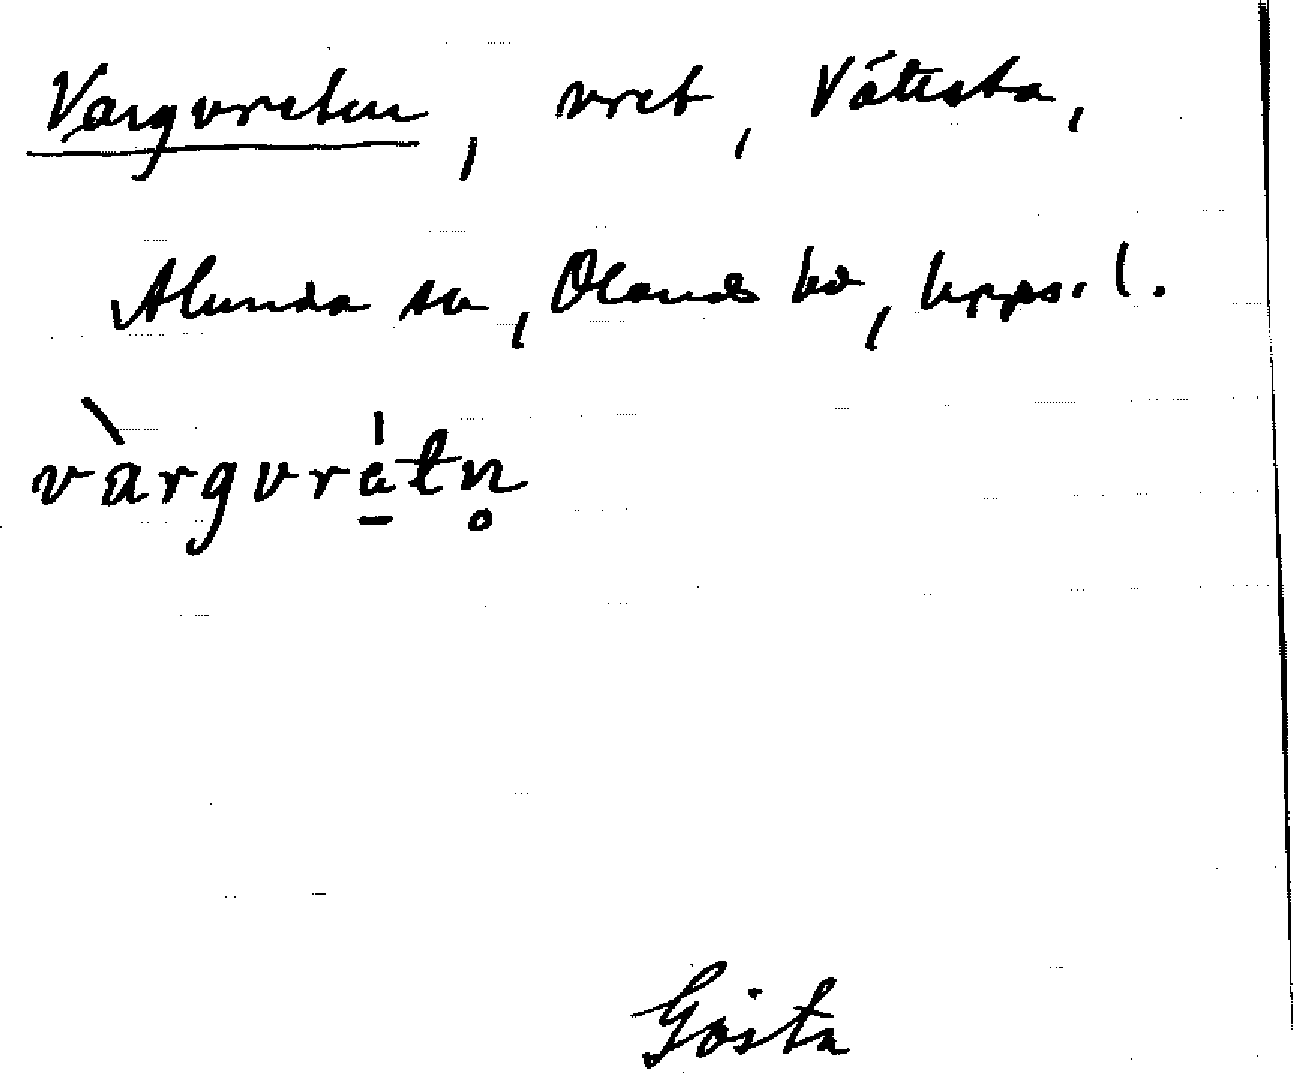 Vargvreten, vret, Våtesta,
Alunda sn, Olands hd, Upps. l.
vàrgvrè̱tn̥
Gösta